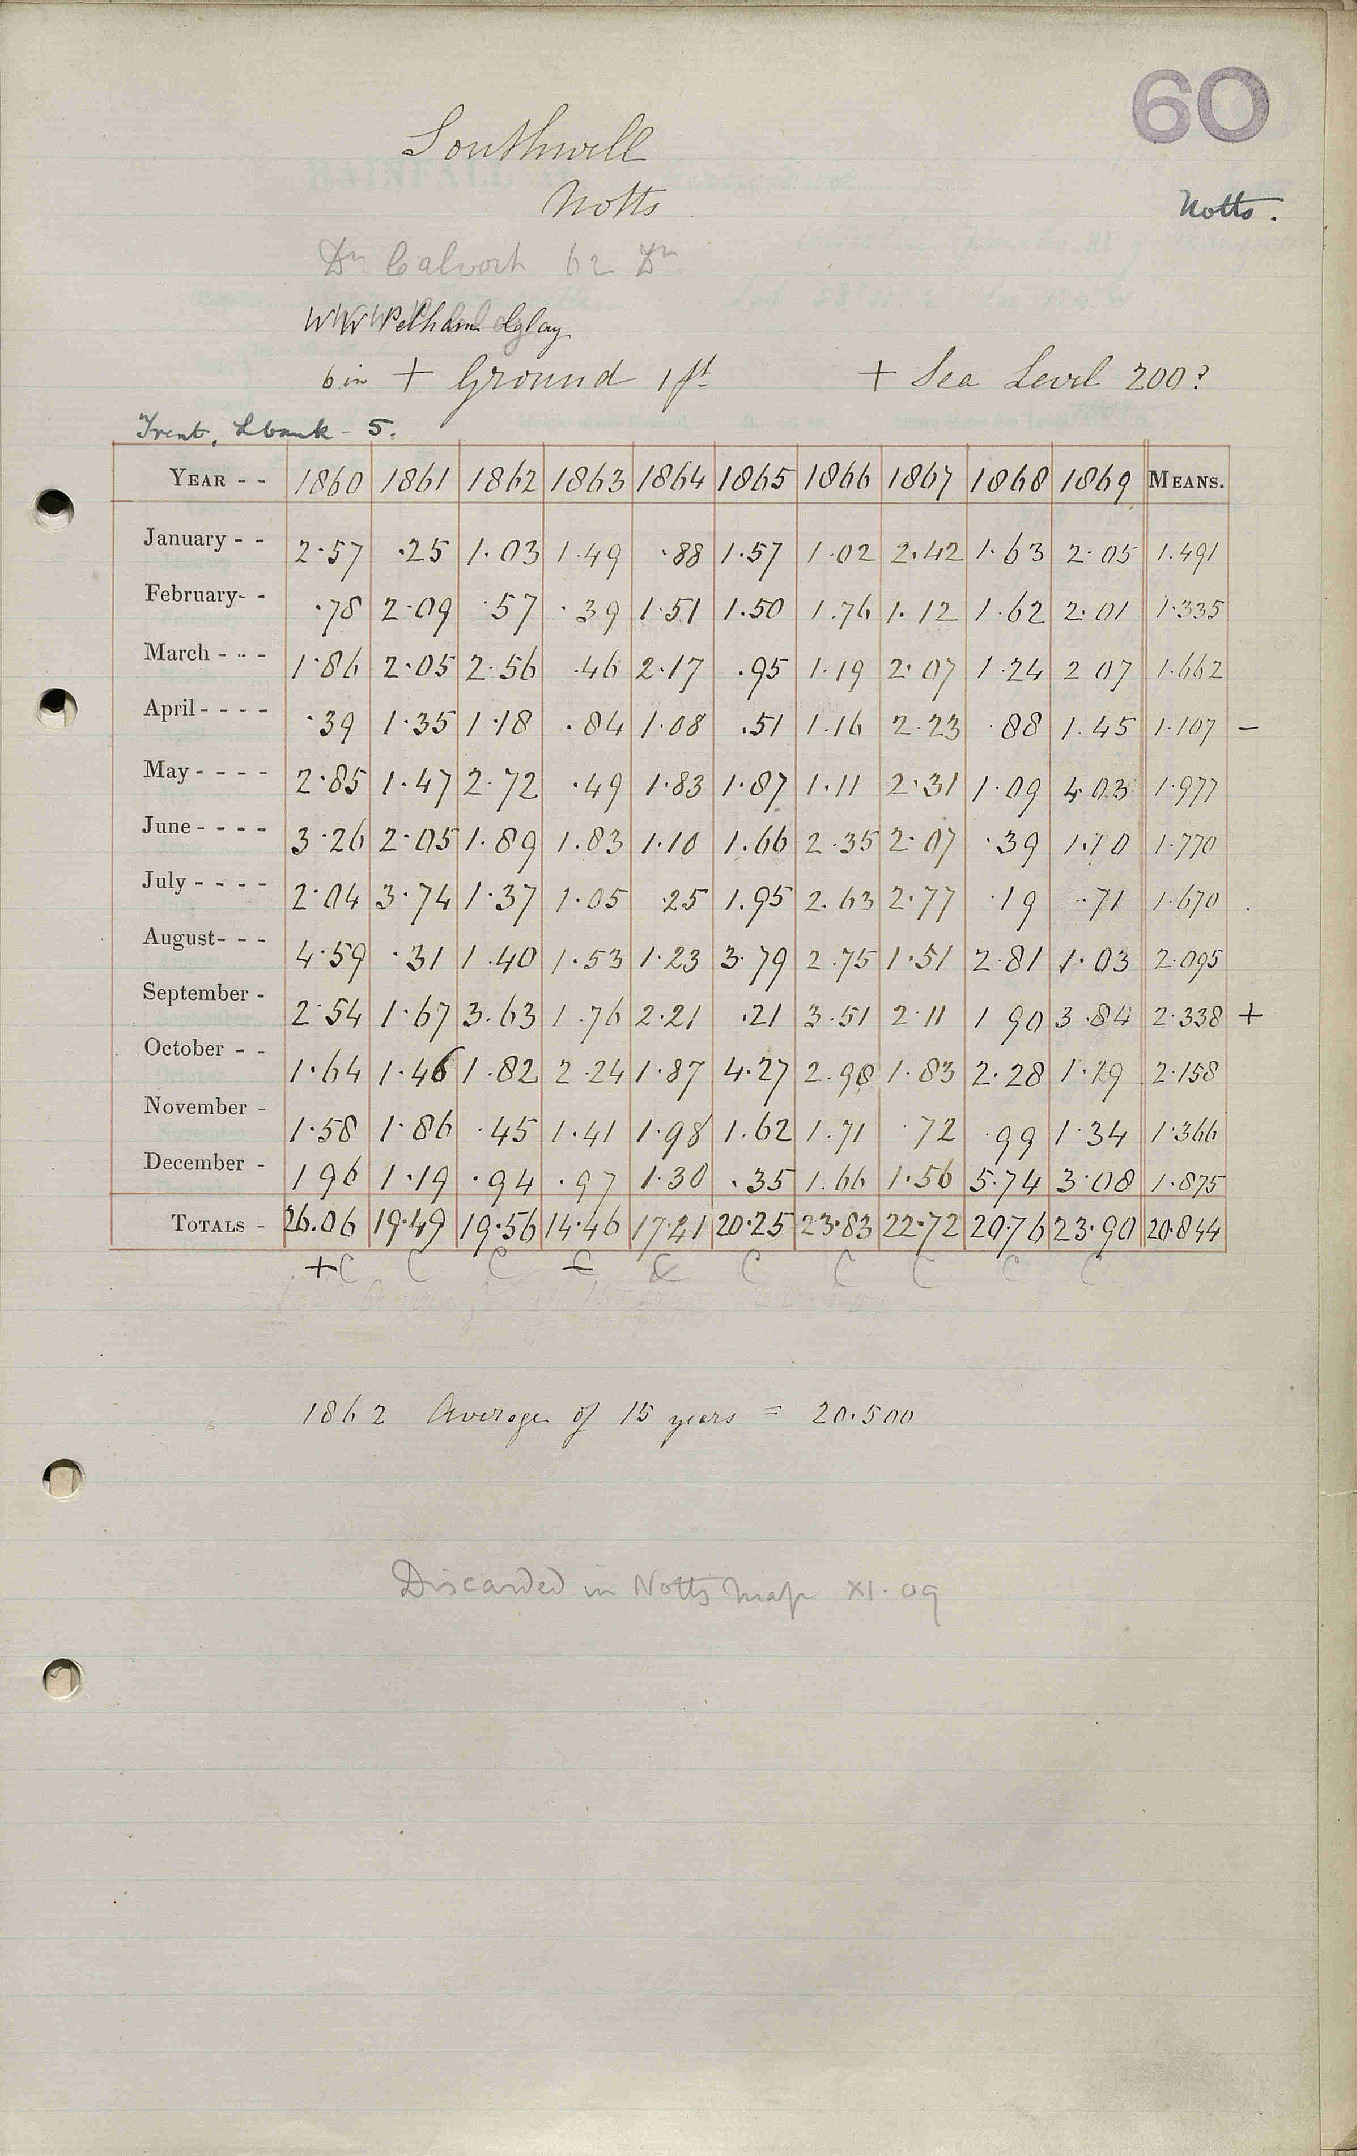 60
Southwell
Notts
Notts.
Dr Calvert 62 Dr
W W Pelham
6 in + Ground 1 ft + Sea Level 200?
Trent, L bank - 5.
YEAR - - 1860 1861 1862 1863 1864 1865 1866 1867 1868 1869 MEANS.
January - - 2.57 .25 1.03 1.49 .88 1.57 1.02 2.42 1.63 2.05 1.491
February- - .78 2.09 .57 .39 1.51 1.50 1.76 1.12 1.62 2.01 1.335
March - - - 1.86 2.05 2.56 .46 2.17 .95 1.19 2.07 1.24 2 07 1.662
April - - - - .39 1.35 1.18 .84 1.08 .51 1.16 2.23 .88 1.45 1.107 -
May - - - - 2.85 1.47 2.72 .49 1.83 1.87 1.11 2.31 1.09 4.03 1.977
June - - - - 3.26 2.05 1.89 1.83 1.10 1.66 2.35 2.07 .39 1.10 1.770
July - - - - 2.04 3.74 1.37 1.05 .25 1.95 2.63 2.77 .19 .71 1.670
August- - - 4.59 .31 1.40 1.53 1.23 3.79 2.75 1.51 2.81 1.03 2.095
September - 2.54 1.67 3.63 1.76 2.21 .21 3.51 2.11 1 90 3.84 2.338 +
October - - 1.64 1.46 1.82 2.24 1.87 4.27 2.98 1.83 2.28 1.29 2.158
November - 1.58 1.86 .45 1.41 1.98 1.62 1.71 .72 .99 1.34 1.366
December - 1 96 1.19 .94 .97 1.30 .35 1.66 1.56 5.74 3.08 1.875
TOTALS - 26.06 19.49 19.56 14.46 17.41 20.25 23.83 22.72 20.76 23.90 20.844
+C C C C C C C C C C
1862 Average of 15 years = 20.500
Discarded in Notts Map XI.09